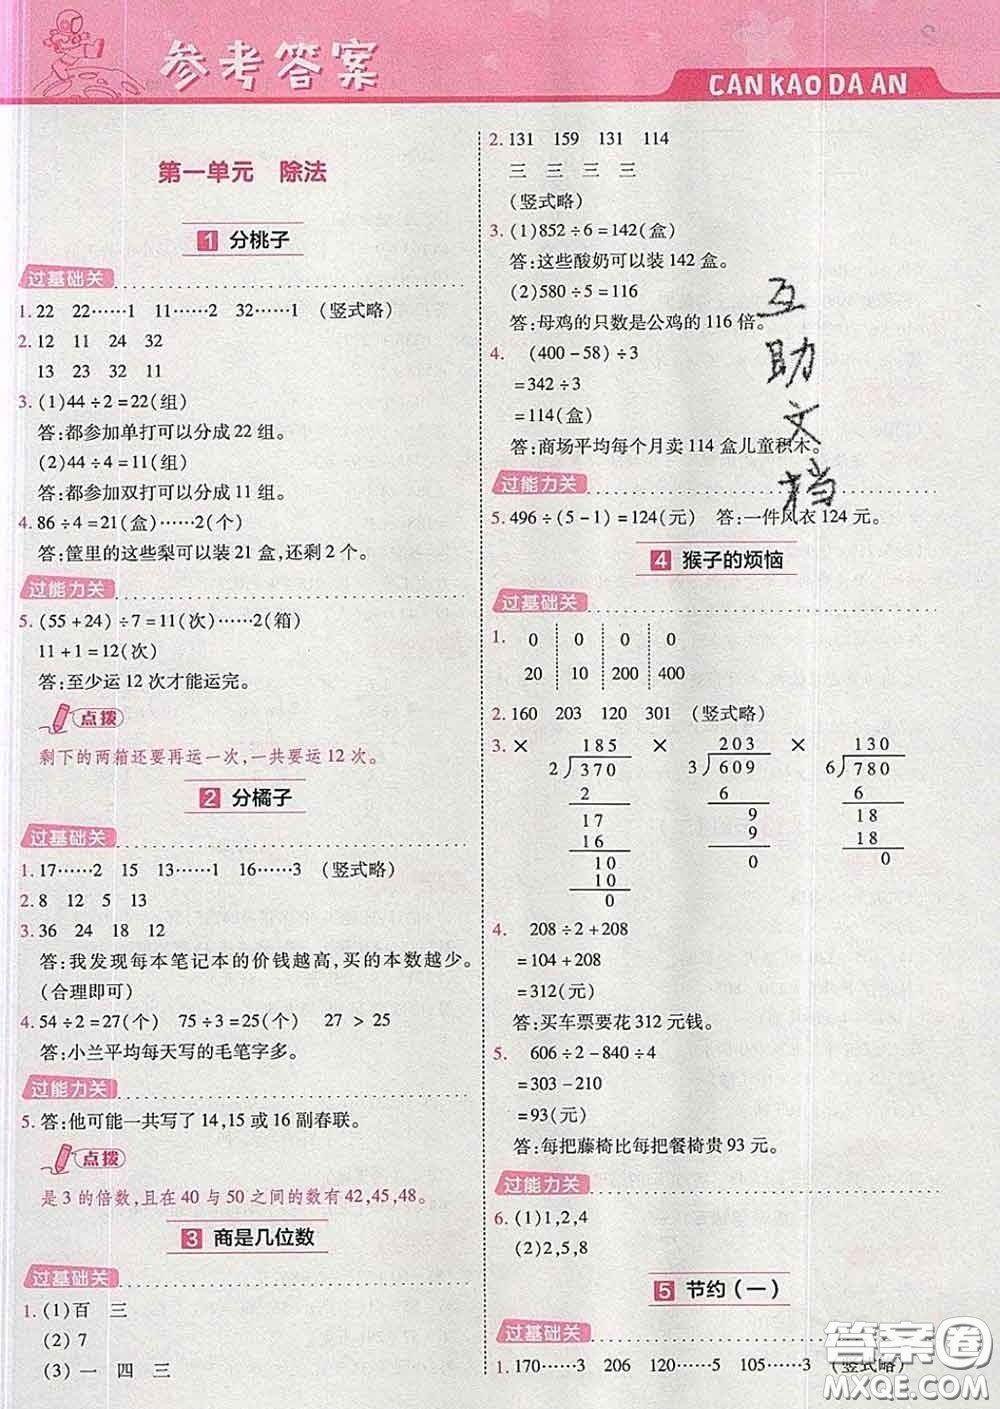 参考答案
CAN KAO DA AN
第一单元 除法
1 分桃子
过基础关
1. 22 22……1 11……2 32……1 (竖式略)
2. 12 11 24 32
13 23 32 11
3. (1)44÷2=22(组)
答:都参加单打可以分成 22 组。
(2)44÷4=11(组)
答:都参加双打可以分成 11 组。
4. 86÷4=21(盒)……2(个)
答:筐里的这些梨可以装 21 盒,还剩 2 个。
过能力关
5. (55+24)÷7=11(次)……2(箱)
11+1=12(次)
答:至少运 12 次才能运完。
点拨
剩下的两箱还要再运一次,一共要运 12 次。
2 分橘子
过基础关
1. 17……2 15 13……1 16……3 (竖式略)
2. 8 12 5 13
3. 36 24 18 12
答:我发现每本笔记本的价钱越高,买的本数越少。
(合理即可)
4. 54÷2=27(个) 75÷3=25(个) 27 > 25
答:小兰平均每天写的毛笔字多。
过能力关
5. 答:他可能一共写了 14,15 或 16 副春联。
点拨
是 3 的倍数,且在 40 与 50 之间的数有 42,45,48。
3 商是几位数
过基础关
1. (1)百 三
(2)7
(3)一 四 三
2. 131 159 131 114
三 三 三 三
(竖式略)
3. (1)852÷6=142(盒)
答:这些酸奶可以装 142 盒。
(2)580÷5=116
答:母鸡的只数是公鸡的 116 倍。
4. (400-58)÷3
=342÷3
=114(盒)
答:商场平均每个月卖 114 盒儿童积木。
过能力关
5. 496÷(5-1)=124(元) 答:一件风衣 124 元。
互助文档
4 猴子的烦恼
过基础关
1. 0 0 0 0
20 10 200 400
2. 160 203 120 301 (竖式略)
3. × 185 × 203 × 130
2)370 3)609 6)780
2 6 6
17 9 18
16 9 18
10 0 0
10
0
4. 208÷2+208
=104+208
=312(元)
答:买车票要花 312 元钱。
5. 606÷2-840÷4
=303-210
=93(元)
答:每把藤椅比每把餐椅贵 93 元。
过能力关
6. (1)1,2,4
(2)2,5,8
5 节约(一)
过基础关
1. 170……3 206 120……5 105……3 (竖式略)
答案圈
MXQE.COM